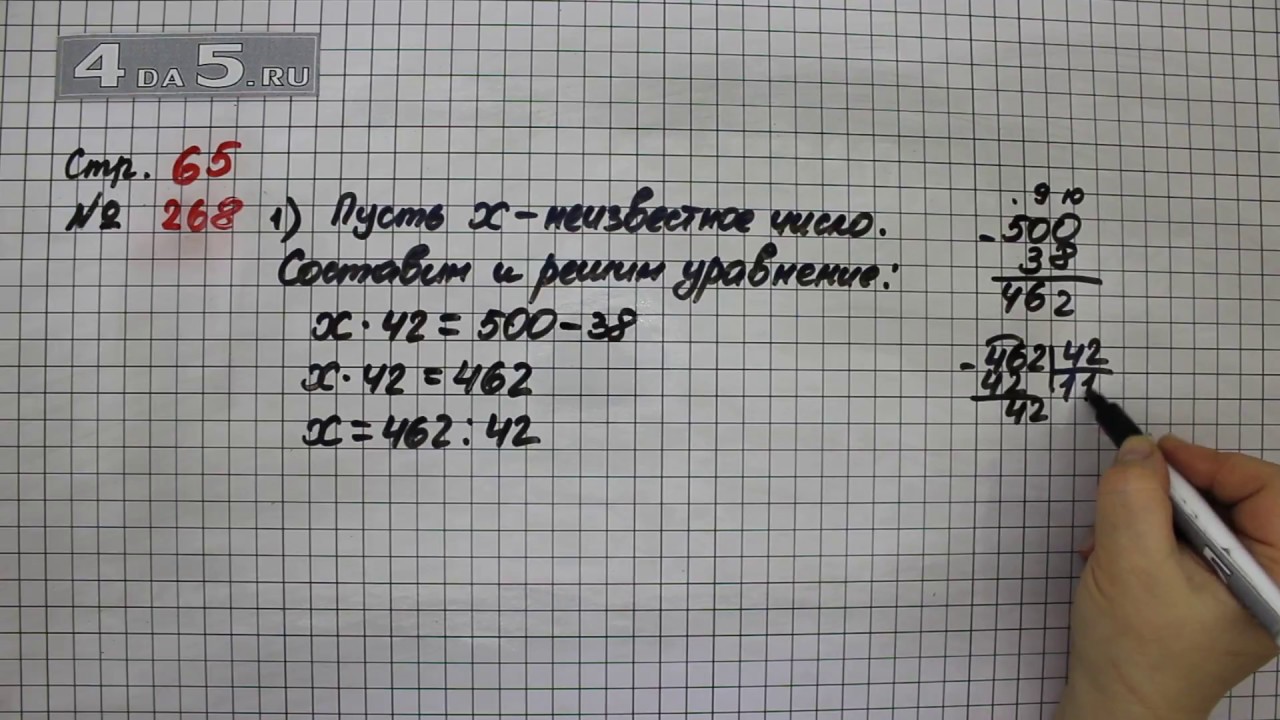 4DA5.RU
Стр. 65
№ 268 1) Пусть x - неизвестное число.
Составим и решим уравнение:
x · 42 = 500 - 38
x · 42 = 462
x = 462 : 42
. 9 10
- 500
38
462
- 462 42
42 11
42